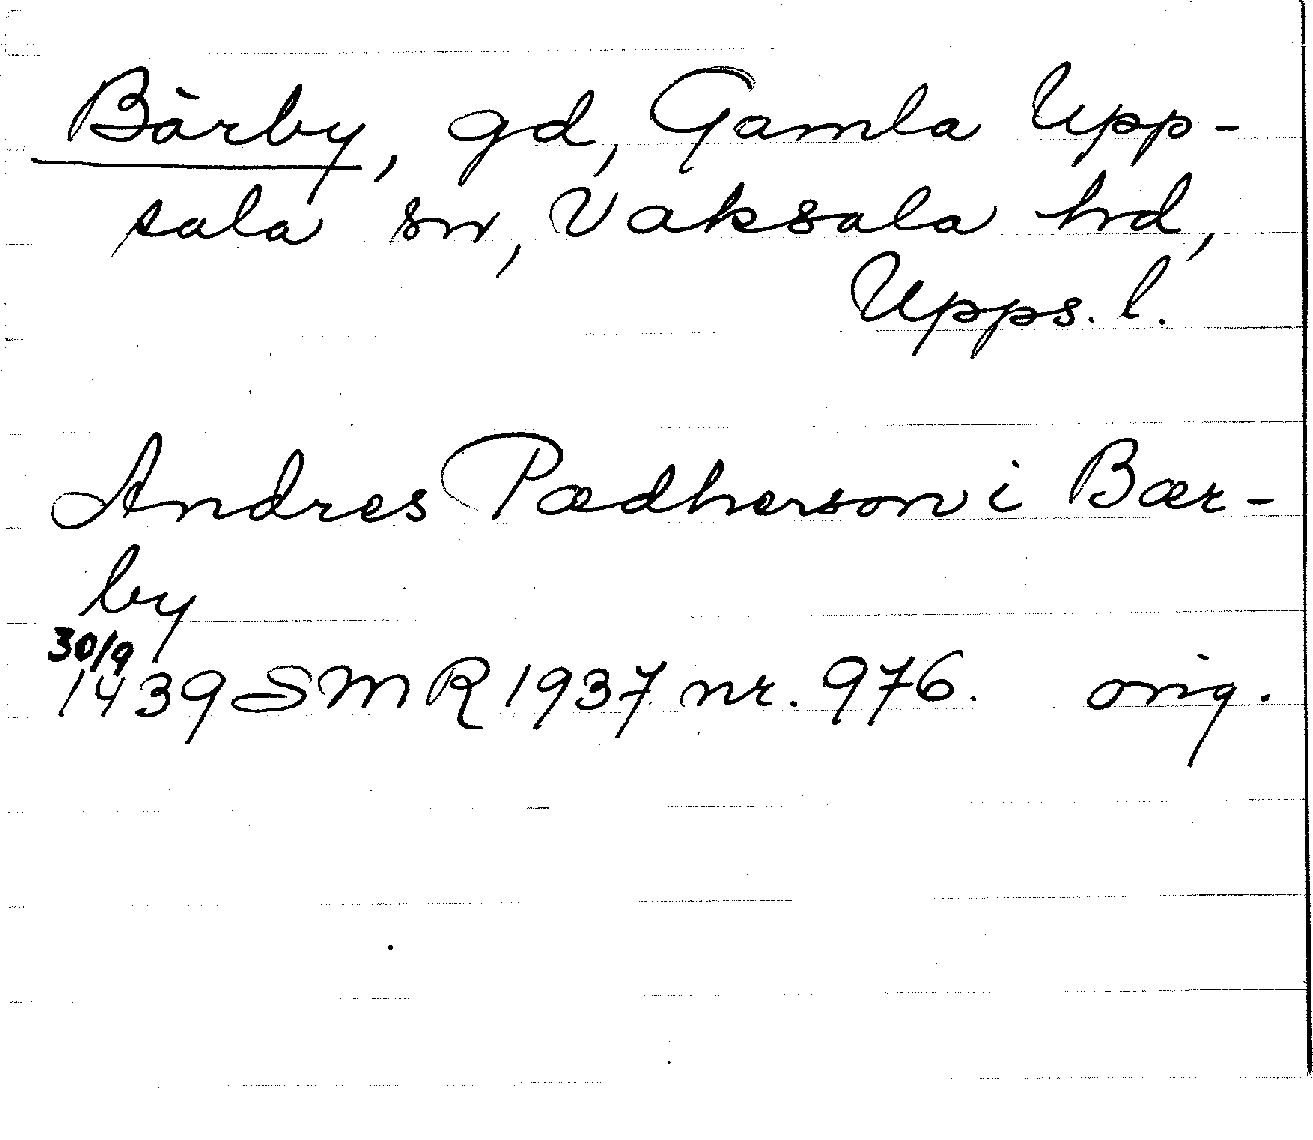 Bärby, gd, Gamla Upp-
sala sn, Vaksala hd,
Upps. l.
Andres Pædherson i Bær-
by
30/9
1439 SMR 1937 nr. 976. orig.